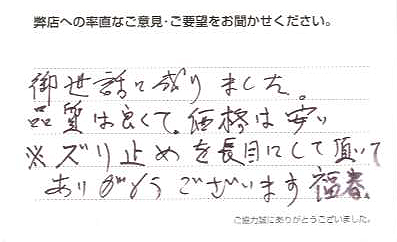 弊店への率直なご意見・ご要望をお聞かせください。
御世話に成りました。
品質は良くて。価格は安い
※ズリ止めを長目にして頂いて
ありがとうございます福春、
ご協力誠にありがとうございました。